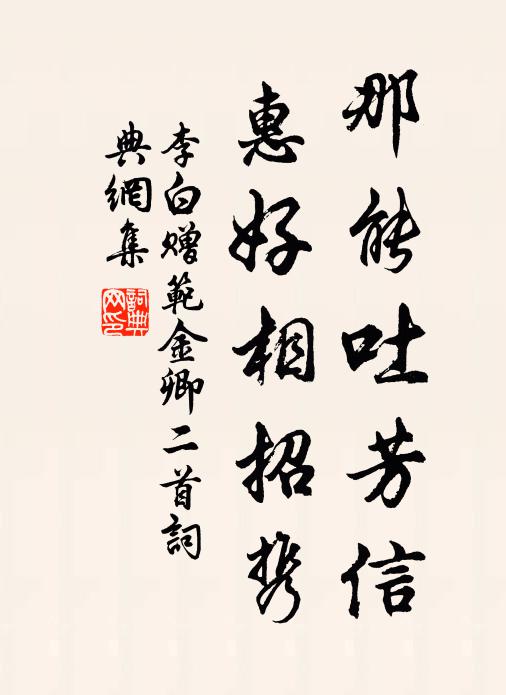 那能吐芳信
惠好相招携
李白赠範金卿二首詞
典網集
詞典
网印